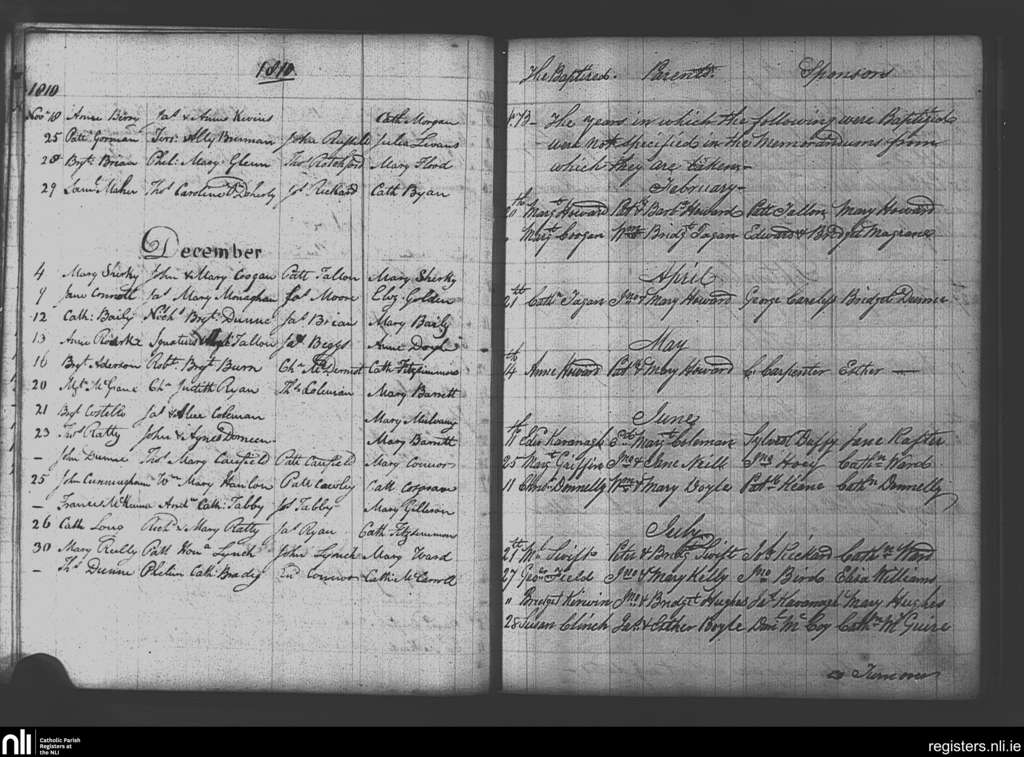 1810
1810
Novr 18 Anne Birry Jas & Anne Kevins Cath Morgan
25 Patt Gorman Ters: Ally Brennan John Russell Julia Levans
28 Brgt Brian Phel: Mary Glenn Thos Rotchford Mary Flood
29 Saml Maher Thos Caroline Doherty Js Rickard Cath Byan
December
4 Mary Shirky John & Mary Coogan Patt Tallon Mary Shirky
9 Jane Connell Jas Mary Monaghan Jas Moore Eliz. Golden
12 Cath: Baily Nichs Brgt Dunne Jas Brian Mary Baily
13 Anne Ignatius Tallon Jas Beggs Anne Doyle
16 Brgt Aderson Robt Brgt Burn Chs McDermot Cath Fitzsimmons
20 Mgt McGrane Chs Judith Ryan Ths Coleman Mary Barrett
21 Brgt Costello Jas & Alice Coleman Mary Mulvany
23 Thos Ratty John & Agnes Domeen Mary Barrett
– John Dunne Thos Mary Caufield Patt Caufield Mary Connors
25 John Cunningham Wm Mary Hanlon Patt Cawley Cath Cosgrave
– Frances McKenna Andw Cath: Tabby Js Tabby Mary Gilleson
26 Cath Long Richd & Mary Ratty Jas Ryan Cath Fitzsimmon
30 Mary Reilly Patt Hona Lynch John Lynch Mary Ward
– Ths Dunne Phelim Cath: Brady Edd Connor Cath: McCarroll
The Baptized. Parents. Sponsors
1873– The years in which the following were Baptized
were not specified in the Memorandums from
which they are taken–
February–
20th Margt Howard Patk & Barba Howard Patt Tallon Mary Howard
" Margt Coogan Wm & Bridgt Fagan Edward & Bridget Magrane
April
21th Cathn Fagan Jno & Mary Howard George Carelys Bridget Dunne
May
14th Anne Howard Patk & Mary Howard C Carpenter Esther —
June
11th Edwd Kavanagh Margt Coleman Sylvest Duffy Jane Rafter
25 Margt Griffin Jno & Jane Neill Jno Hoey Cathn Ward
11 Donnelly Wm & Mary Doyle Patk Keane Cathn Donnelly
July
21th Swift Peter & Bridgt Swift Jos Rickard Cathn Ward
27 Geoe Field Jno & Mary Kelly Jno Bird Eliza Williams
" Bridget Kirwin Jno & Bridget Hughes Jas Kavanagh Mary Hughes
28 Susan Clinch Jas & Esther Boyle Danl McCoy Cathn McGuire
nli Catholic Parish
Registers at
the NLI
registers.nli.ie